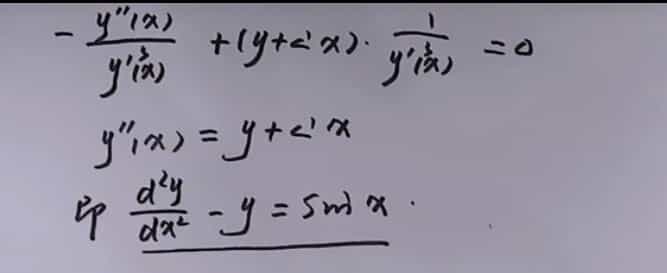 - y''(x) / y'³(x) + (y + sin x) · 1 / y'³(x) = 0
y''(x) = y + sin x
即 d²y / dx² - y = sin x .